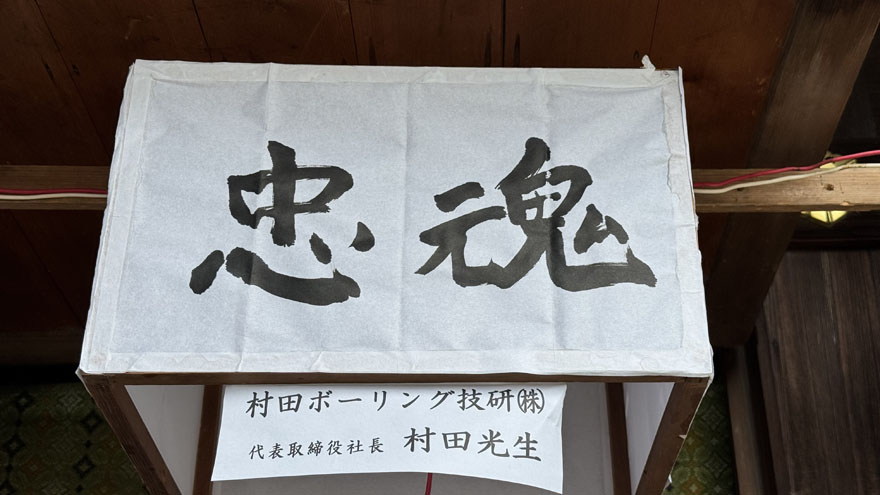 忠魂
村田ボーリング技研㈱
代表取締役社長 村田光生